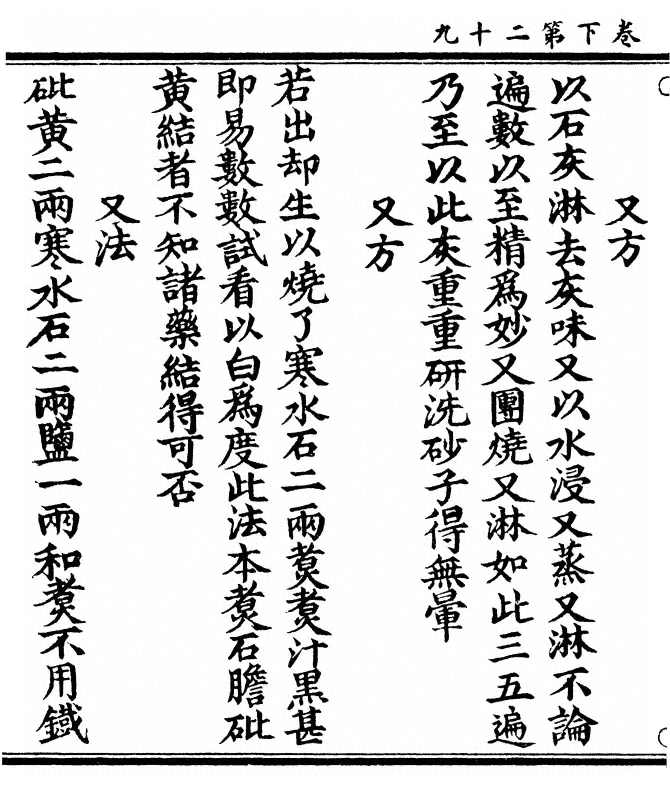 卷下第二十九
又方
以石灰淋去灰味又以水浸又蒸又淋不論
遍數以至精為妙又團燒又淋如此三五遍
乃至以此灰重重研洗砂子得無暈
又方
若出却生以燒了寒水石二兩煑煑汁黒甚
即易數數試看以白為度此法本煑石膽砒
黄結者不知諸藥結得可否
又法
砒黄二兩寒水石二兩鹽一兩和煑不用鐡